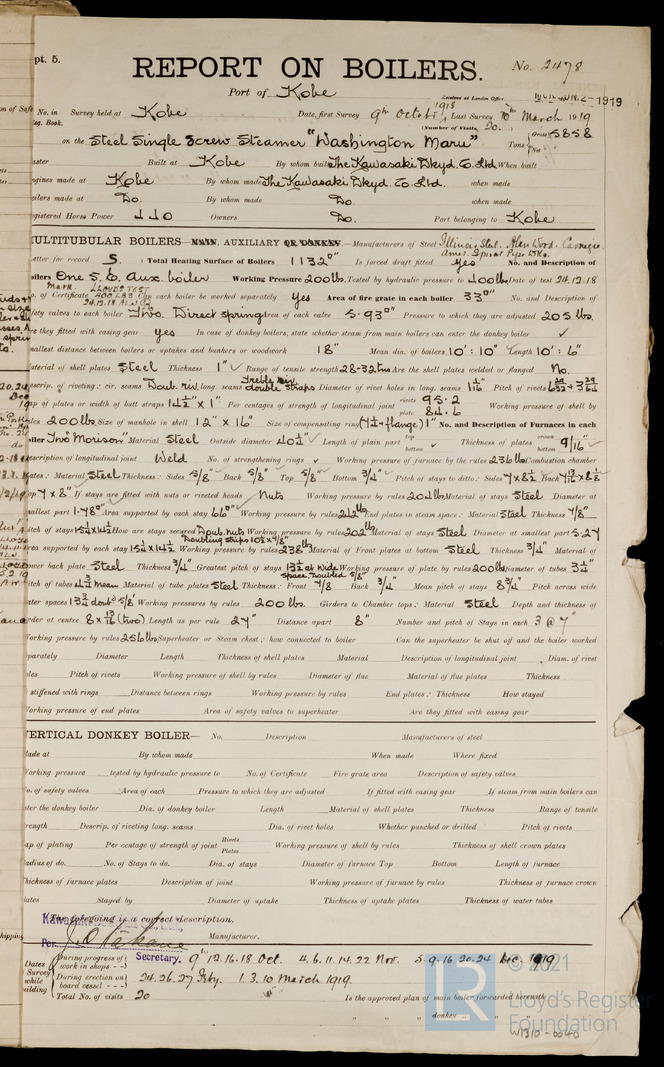 pt. 5.
REPORT ON BOILERS.
No. 2478
Port of Kobe
Received at London Office
No. in Survey held at Kobe Date, first Survey 9th Octobr 1918 Last Survey 10th March 1919
(Number of Visits 20.)
on the Steel Single Screw Steamer "Washington Maru" Tons Gross 5858 Net
Built at Kobe By whom built The Kawasaki Dkyd. Co. Ltd. When built
ngines made at Kobe By whom made The Kawasaki Dkyd. Co. Ltd. when made
oilers made at Do. By whom made Do. when made
egistered Horse Power 440 Owners Do. Port belonging to Kobe
MULTITUBULAR BOILERS MAIN, AUXILIARY OR DONKEY.—Manufacturers of Steel Illinois Steel. Alan Wood. Carnegie.
Letter for record S. Total Heating Surface of Boilers 1132 Is forced draft fitted Yes No. and Description of
oilers One S. E. Aux. boiler Working Pressure 200 lbs. Tested by hydraulic pressure to 400 lbs Date of test 24.12.18
o. of Certificate Can each boiler be worked separately Yes Area of fire grate in each boiler 33 No. and Description of
safety valves to each boiler Two. Direct spring Area of each valve 5.93 Pressure to which they are adjusted 205 lbs.
re they fitted with easing gear yes In case of donkey boilers, state whether steam from main boilers can enter the donkey boiler ✓
mallest distance between boilers or uptakes and bunkers or woodwork 18" Mean dia. of boilers 10': 10" Length 10': 6"
aterial of shell plates Steel Thickness 1" Range of tensile strength 28-32 tns Are the shell plates welded or flanged No.
escrip. of riveting: cir. seams Doub. riv. long. seams Treble riv. double straps Diameter of rivet holes in long. seams Pitch of rivets
ap of plates or width of butt straps Per centages of strength of longitudinal joint rivets 95.2 plate 84.6 Working pressure of shell by
ules 200 lbs. Size of manhole in shell 12" × 16" Size of compensating ring No. and Description of Furnaces in each
oiler Two Morison Material Steel Outside diameter Length of plain part top bottom Thickness of plates crown bottom 9/16
escription of longitudinal joint Weld No. of strengthening rings Working pressure of furnace by the rules 236 lbs Combustion chamber
lates: Material Steel Thickness: Sides 5/8" Back 5/8" Top 5/8" Bottom 3/4" Pitch of stays to ditto: Sides Back
op 7 × 8" If stays are fitted with nuts or riveted heads Nuts Working pressure by rules 204 lbs Material of stays Steel Diameter at
mallest part Area supported by each stay Working pressure by rules End plates in steam space: Material Steel Thickness 7/8"
itch of stays How are stays secured Doub. nuts Working pressure by rules 202 lbs Material of stays Steel Diameter at smallest part 5.27
rea supported by each stay Working pressure by rules 238 lbs Material of Front plates at bottom Steel Thickness 3/4" Material of
ower back plate Steel Thickness 3/4" Greatest pitch of stays Working pressure of plate by rules 200 lbs Diameter of tubes
itch of tubes Material of tube plates Steel Thickness: Front 7/8 Back 3/4" Mean pitch of stays 8 3/4" Pitch across wide
ater spaces Working pressures by rules 200 lbs. Girders to Chamber tops: Material Steel Depth and thickness of
rder at centre Length as per rule 27" Distance apart 8" Number and pitch of Stays in each 3 @ 7"
orking pressure by rules 256 lbs Superheater or Steam chest; how connected to boiler Can the superheater be shut off and the boiler worked
parately Diameter Length Thickness of shell plates Material Description of longitudinal joint Diam. of rivet
oles Pitch of rivets Working pressure of shell by rules Diameter of flue Material of flue plates Thickness
stiffened with rings Distance between rings Working pressure by rules End plates: Thickness How stayed
orking pressure of end plates Area of safety valves to superheater Are they fitted with easing gear
VERTICAL DONKEY BOILER— No. Description Manufacturers of steel
ade at By whom made When made Where fixed
orking pressure tested by hydraulic pressure to No. of Certificate Fire grate area Description of safety valves
o. of safety valves Area of each Pressure to which they are adjusted If fitted with easing gear If steam from main boilers can
ter the donkey boiler Dia. of donkey boiler Length Material of shell plates Thickness Range of tensile
rength Descrip. of riveting long. seams Dia. of rivet holes Whether punched or drilled Pitch of rivets
ap of plating Per centage of strength of joint Rivets Plates Working pressure of shell by rules Thickness of shell crown plates
adius of do. No. of Stays to do. Dia. of stays Diameter of furnace Top Bottom Length of furnace
hickness of furnace plates Description of joint Working pressure of furnace by rules Thickness of furnace crown
lates Stayed by Diameter of uptake Thickness of uptake plates Thickness of water tubes
The foregoing is a correct description,
Manufacturer.
Secretary.
Dates of Survey while building During progress of work in shops 9th 12. 16. 18 Oct. 4. 6. 11. 14. 22 Nov. 5. 9. 16 20. 24 Dec. 1919
During erection on board vessel 24. 26. 27 Feby. 1. 3. 10 March 1919.
Total No. of visits 20 Is the approved plan of main boiler forwarded herewith
" " " donkey " " "
© 2021
Lloyd's Register
Foundation
W1310-0040